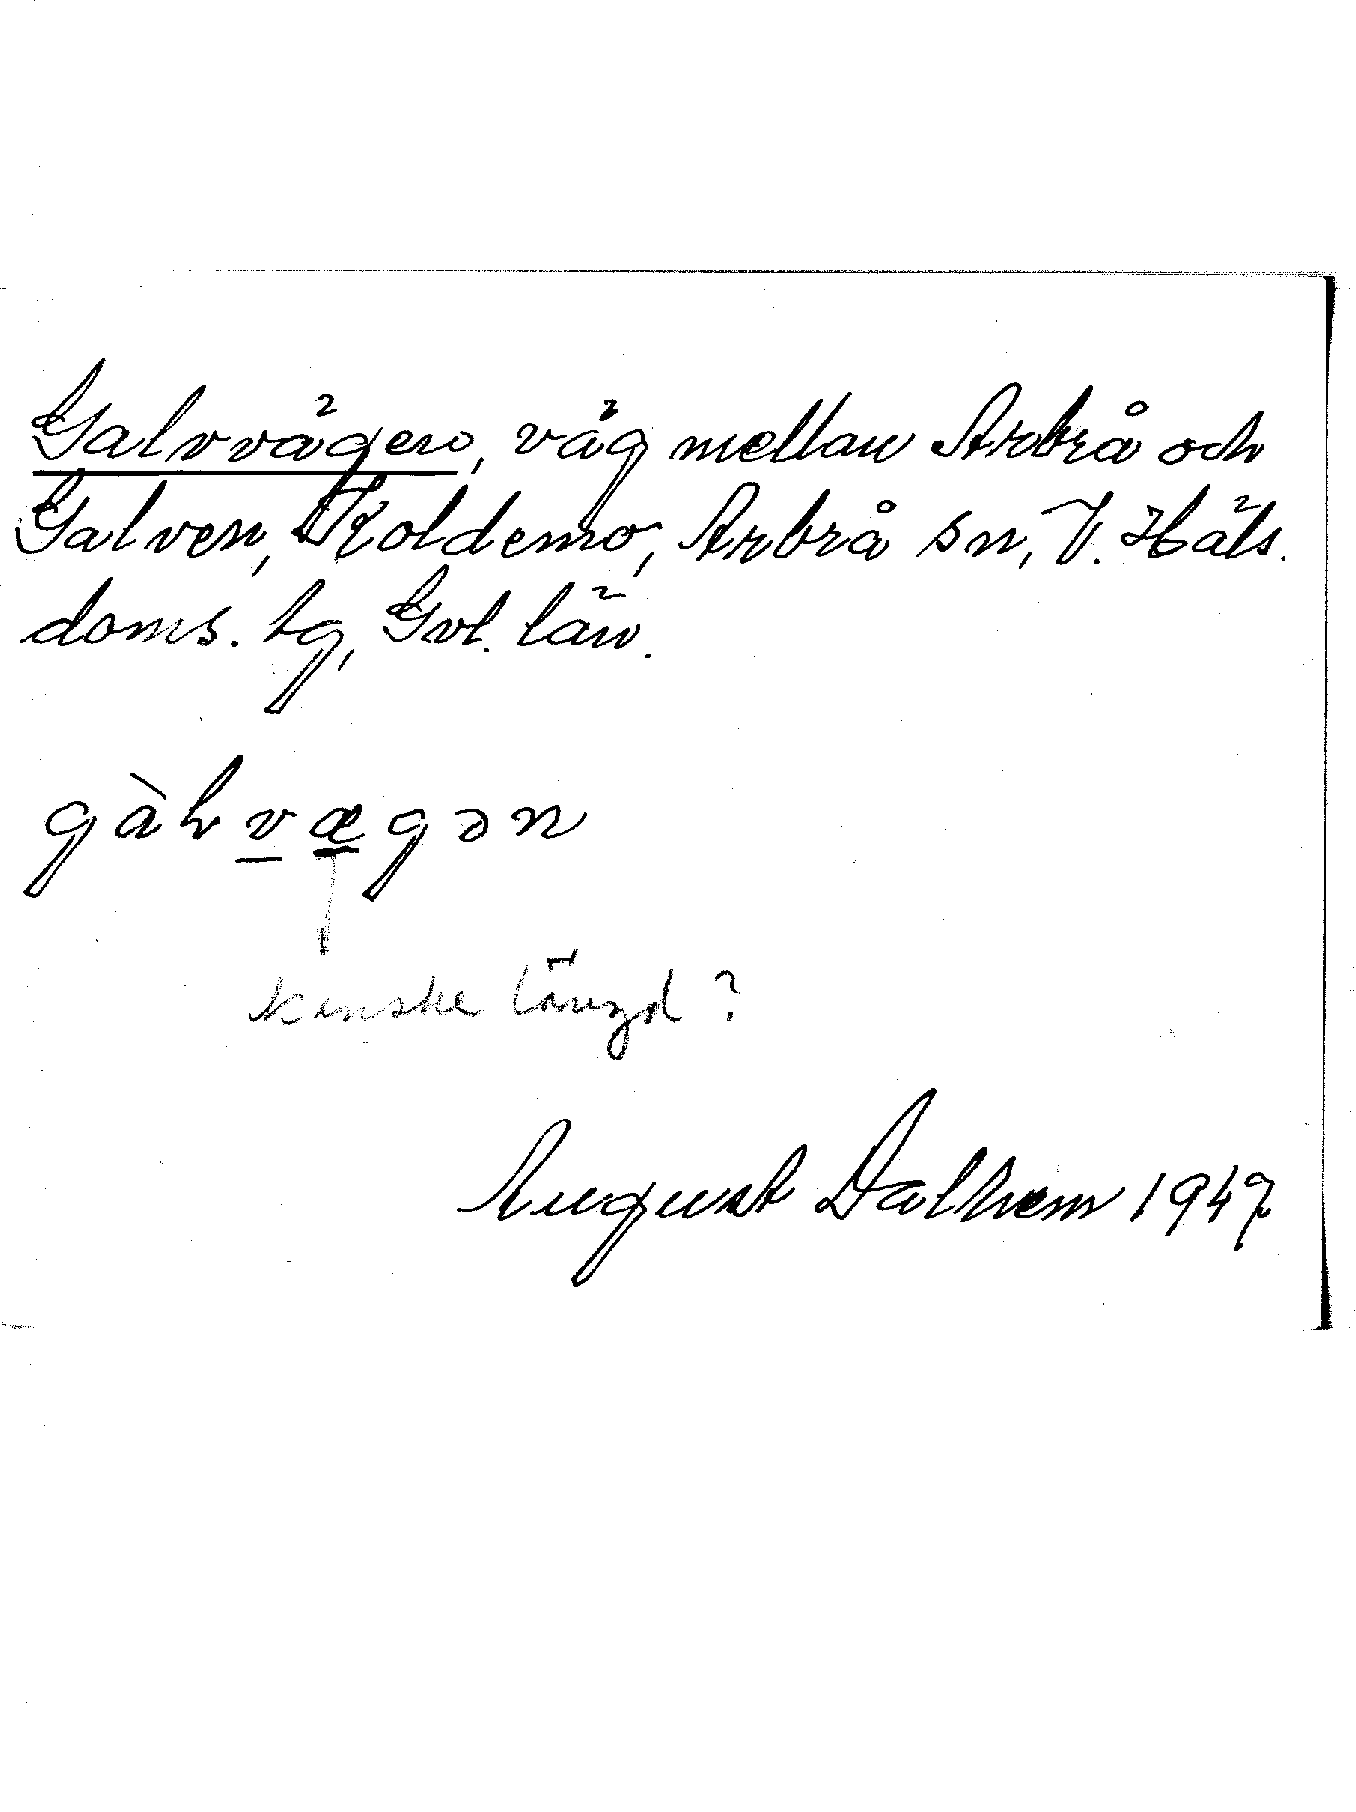 Galvvägen, väg mellan Arbrå och
Galven, Koldemo, Arbrå sn, V. Häls.
doms. tg, Gvl. län.
gàlvægən
kanske längd?
August Dalhem 1947